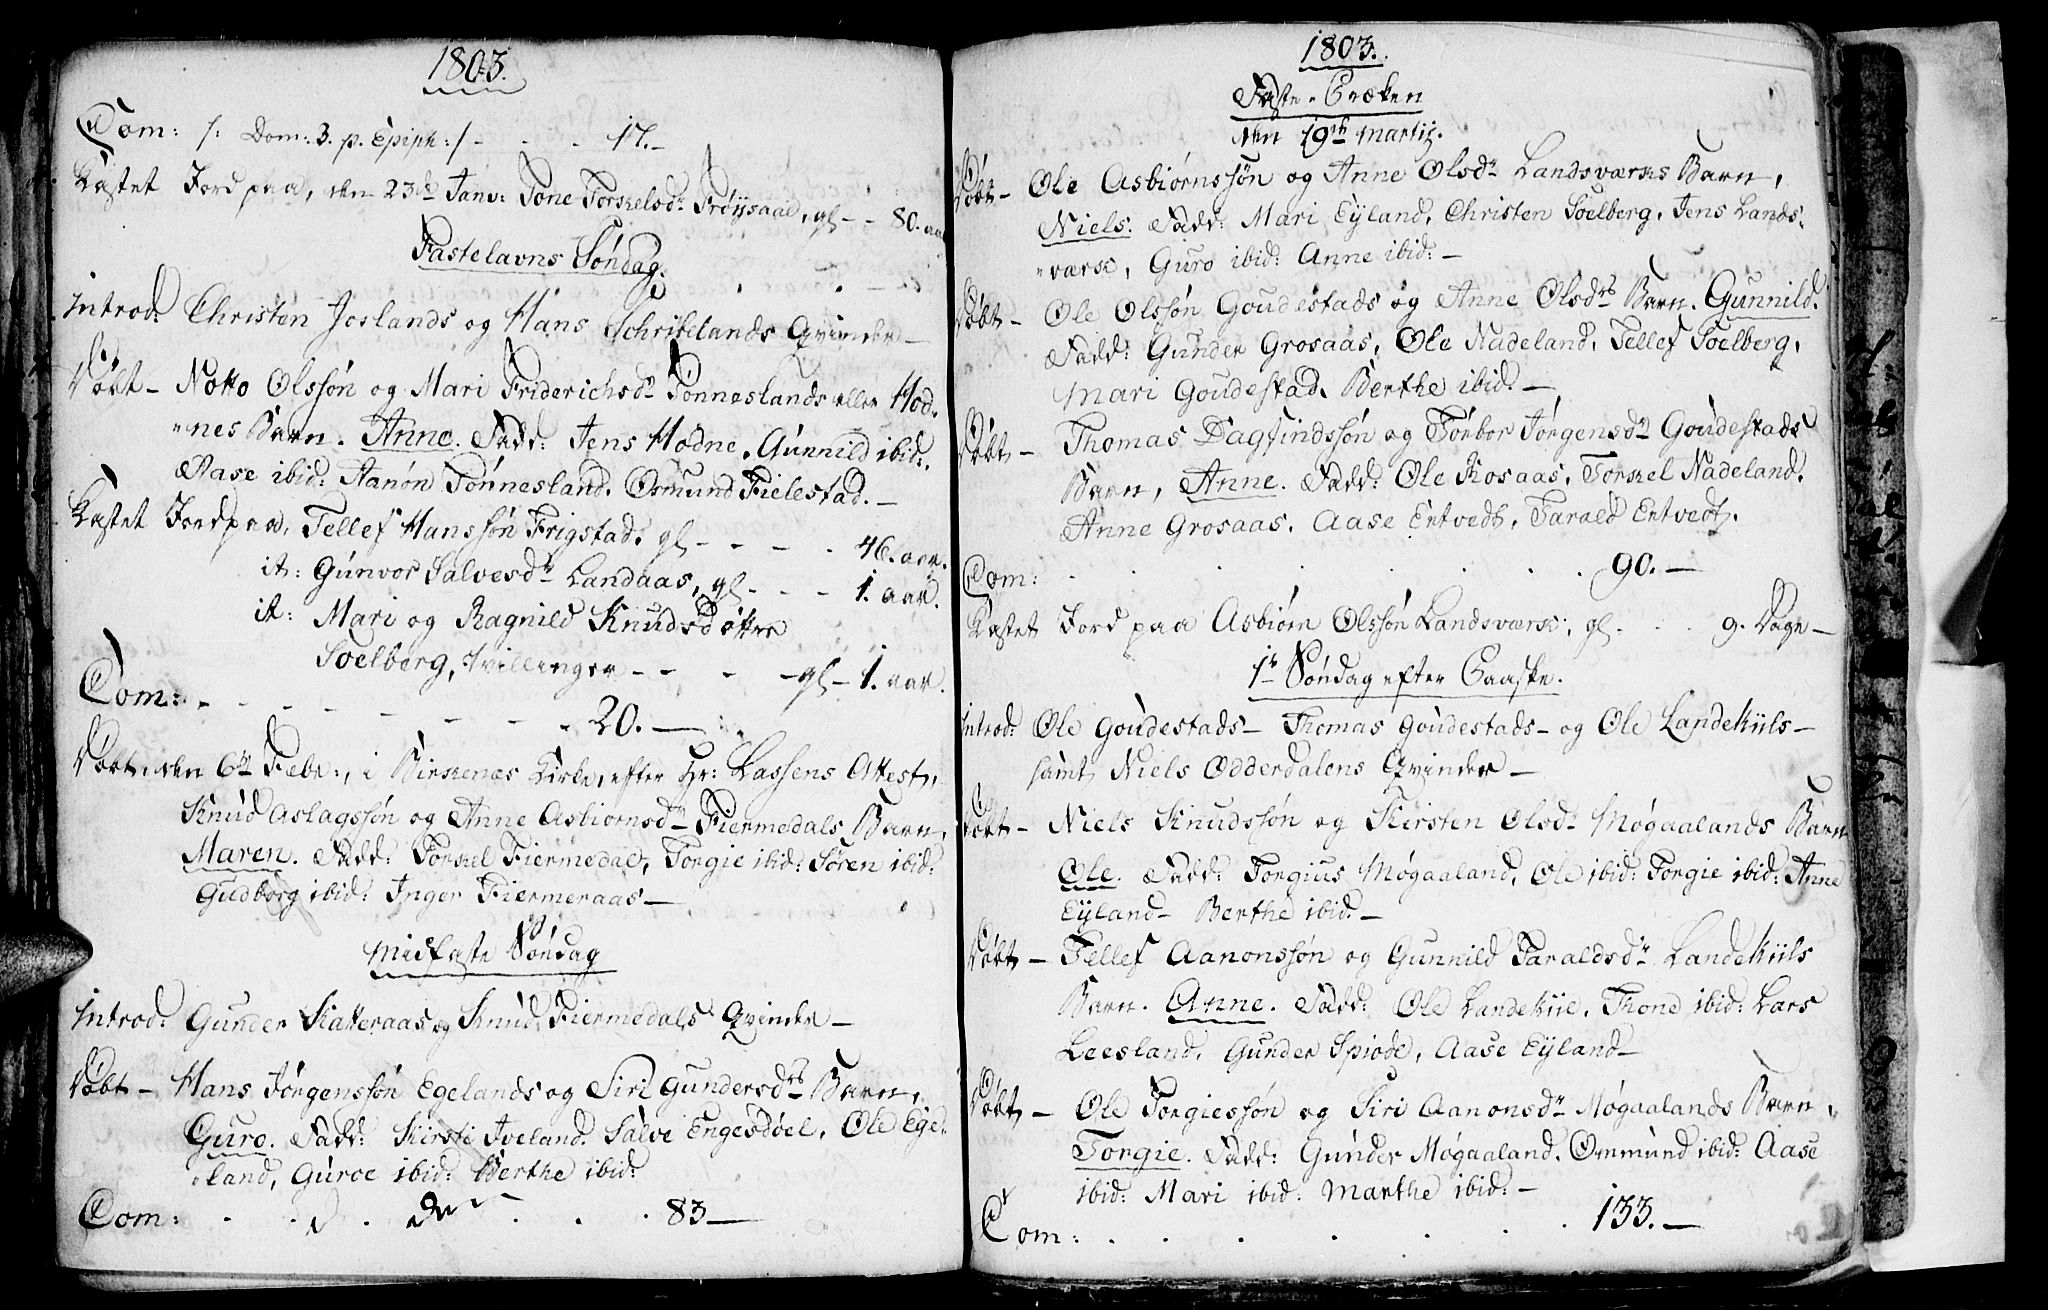 1803.
Com: /: Dom: 3. p. Epiph: /- - - 17.-
Kastet Jord paa, den 23de Janv: Tone Torkelsdr Frøysaae, gl- - 80. aar
Fastelavns Søndag.
Introd: Christen Joslands og Hans Schribelands Qvinder-
Døbt- Notto Olssøn og Mari Friderichsdr Tønneslands eller Hod-
"nes Barn. Anne. Fadd: Jens Hodne. Gunnild ibid:
Aase ibid: Aanøn Tønnesland. Osmund Fielestad.-
Kastet Jord paa, Tellef Hanssøn Frigstad. gl- - - - 46. aar.
it: Gunvor Salvesdr Landaas, gl- - - 1. aar.
it: Mari og Ragnild Knudsdøttre
Soelberg, tvillinger- - - -gl- 1. aar.
Com:- - - - - - - - 20.-
Døbt, den 6te Febr:, i Birkenes Kirke, efter Hr: Lassens Attest,
Knud Aslagssøn og Anne Asbiørnsdr Fiermedals Barn,
Maren. Fadd: Torkel Fiermedal, Torgie ibid: Søren ibid:
Gudborg ibid: Inger Fiermeraas-
Midfaste Søndag
Introd: Gunder Katteraas og Knud Fiermedals Qvinder-
Døbt- Hans Jørgenssøn Egelands og Siri Gundersdrs Barn,
Guro. Fadd: Kirsti Iveland. Salve Engesdøel, Ole Ege-
"land, Guroe ibid: Berthe ibid:
Com: - - - - - - 83-
1803.
Faste-Præken
den 19de Martij.
Døbt- Ole Asbiørnssøn og Anne Olsdr Landsværks Barn,
Niels. Fadd: Mari Eyland, Christen Soelberg, Jens Lands-
"værk, Guro ibid: Anne ibid:-
Døbt- Ole Olssøn Goudestads og Anne Olsdrs Barn. Gunnild.
Fadd: Gunder Grosaas, Ole Nadeland, Tellef Soelberg,
Mari Goudestad. Berthe ibid.-
Døbt- Thomas Dagfindssøn og Torbor Jørgensdr Goudestads
Barn, Anne. Fadd: Ole Kosaas, Torkel Nadeland.
Anne Grosaas. Aase Entvedt, Tarald Entvedt.
Com: - - - - - - - 90.-
Kastet Jord paa Asbiørn Olssøn Landsværk, gl. - - 9. Dage-
1te Søndag efter Paaske.
Introd: Ole Goudestads- Thomas Goudestads- og Ole Landekiils-
samt Niels Odderdalens Qvinder-
Døbt- Niels Knudssøn og Kirsten Olsdr Møgaalands Barn
Ole. Fadd: Torgius Møgaaland, Ole ibid: Torgie ibid: Anne
Eyland- Berthe ibid.-
Døbt- Tellef Aanonssøn og Gunnild Taraldsdr Landekiils
Barn. Anne. Fadd: Ole Landekiil, Thone ibid: Lars
Leesland, Gunder Spiode, Aase Eyland-
Døbt- Ole Torgiessøn og Siri Aanonsdr Møgaalands Barn,
Torgie. Fadd: Gunder Møgaaland. Ommund ibid: Aase
ibid: Mari ibid: Marthe ibid:-
Com: - - - - - - 133.-